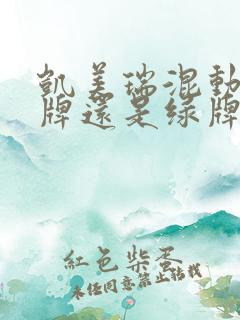 凯美瑞混动
牌还是绿牌
红色柴蛋
未经同意禁止转载